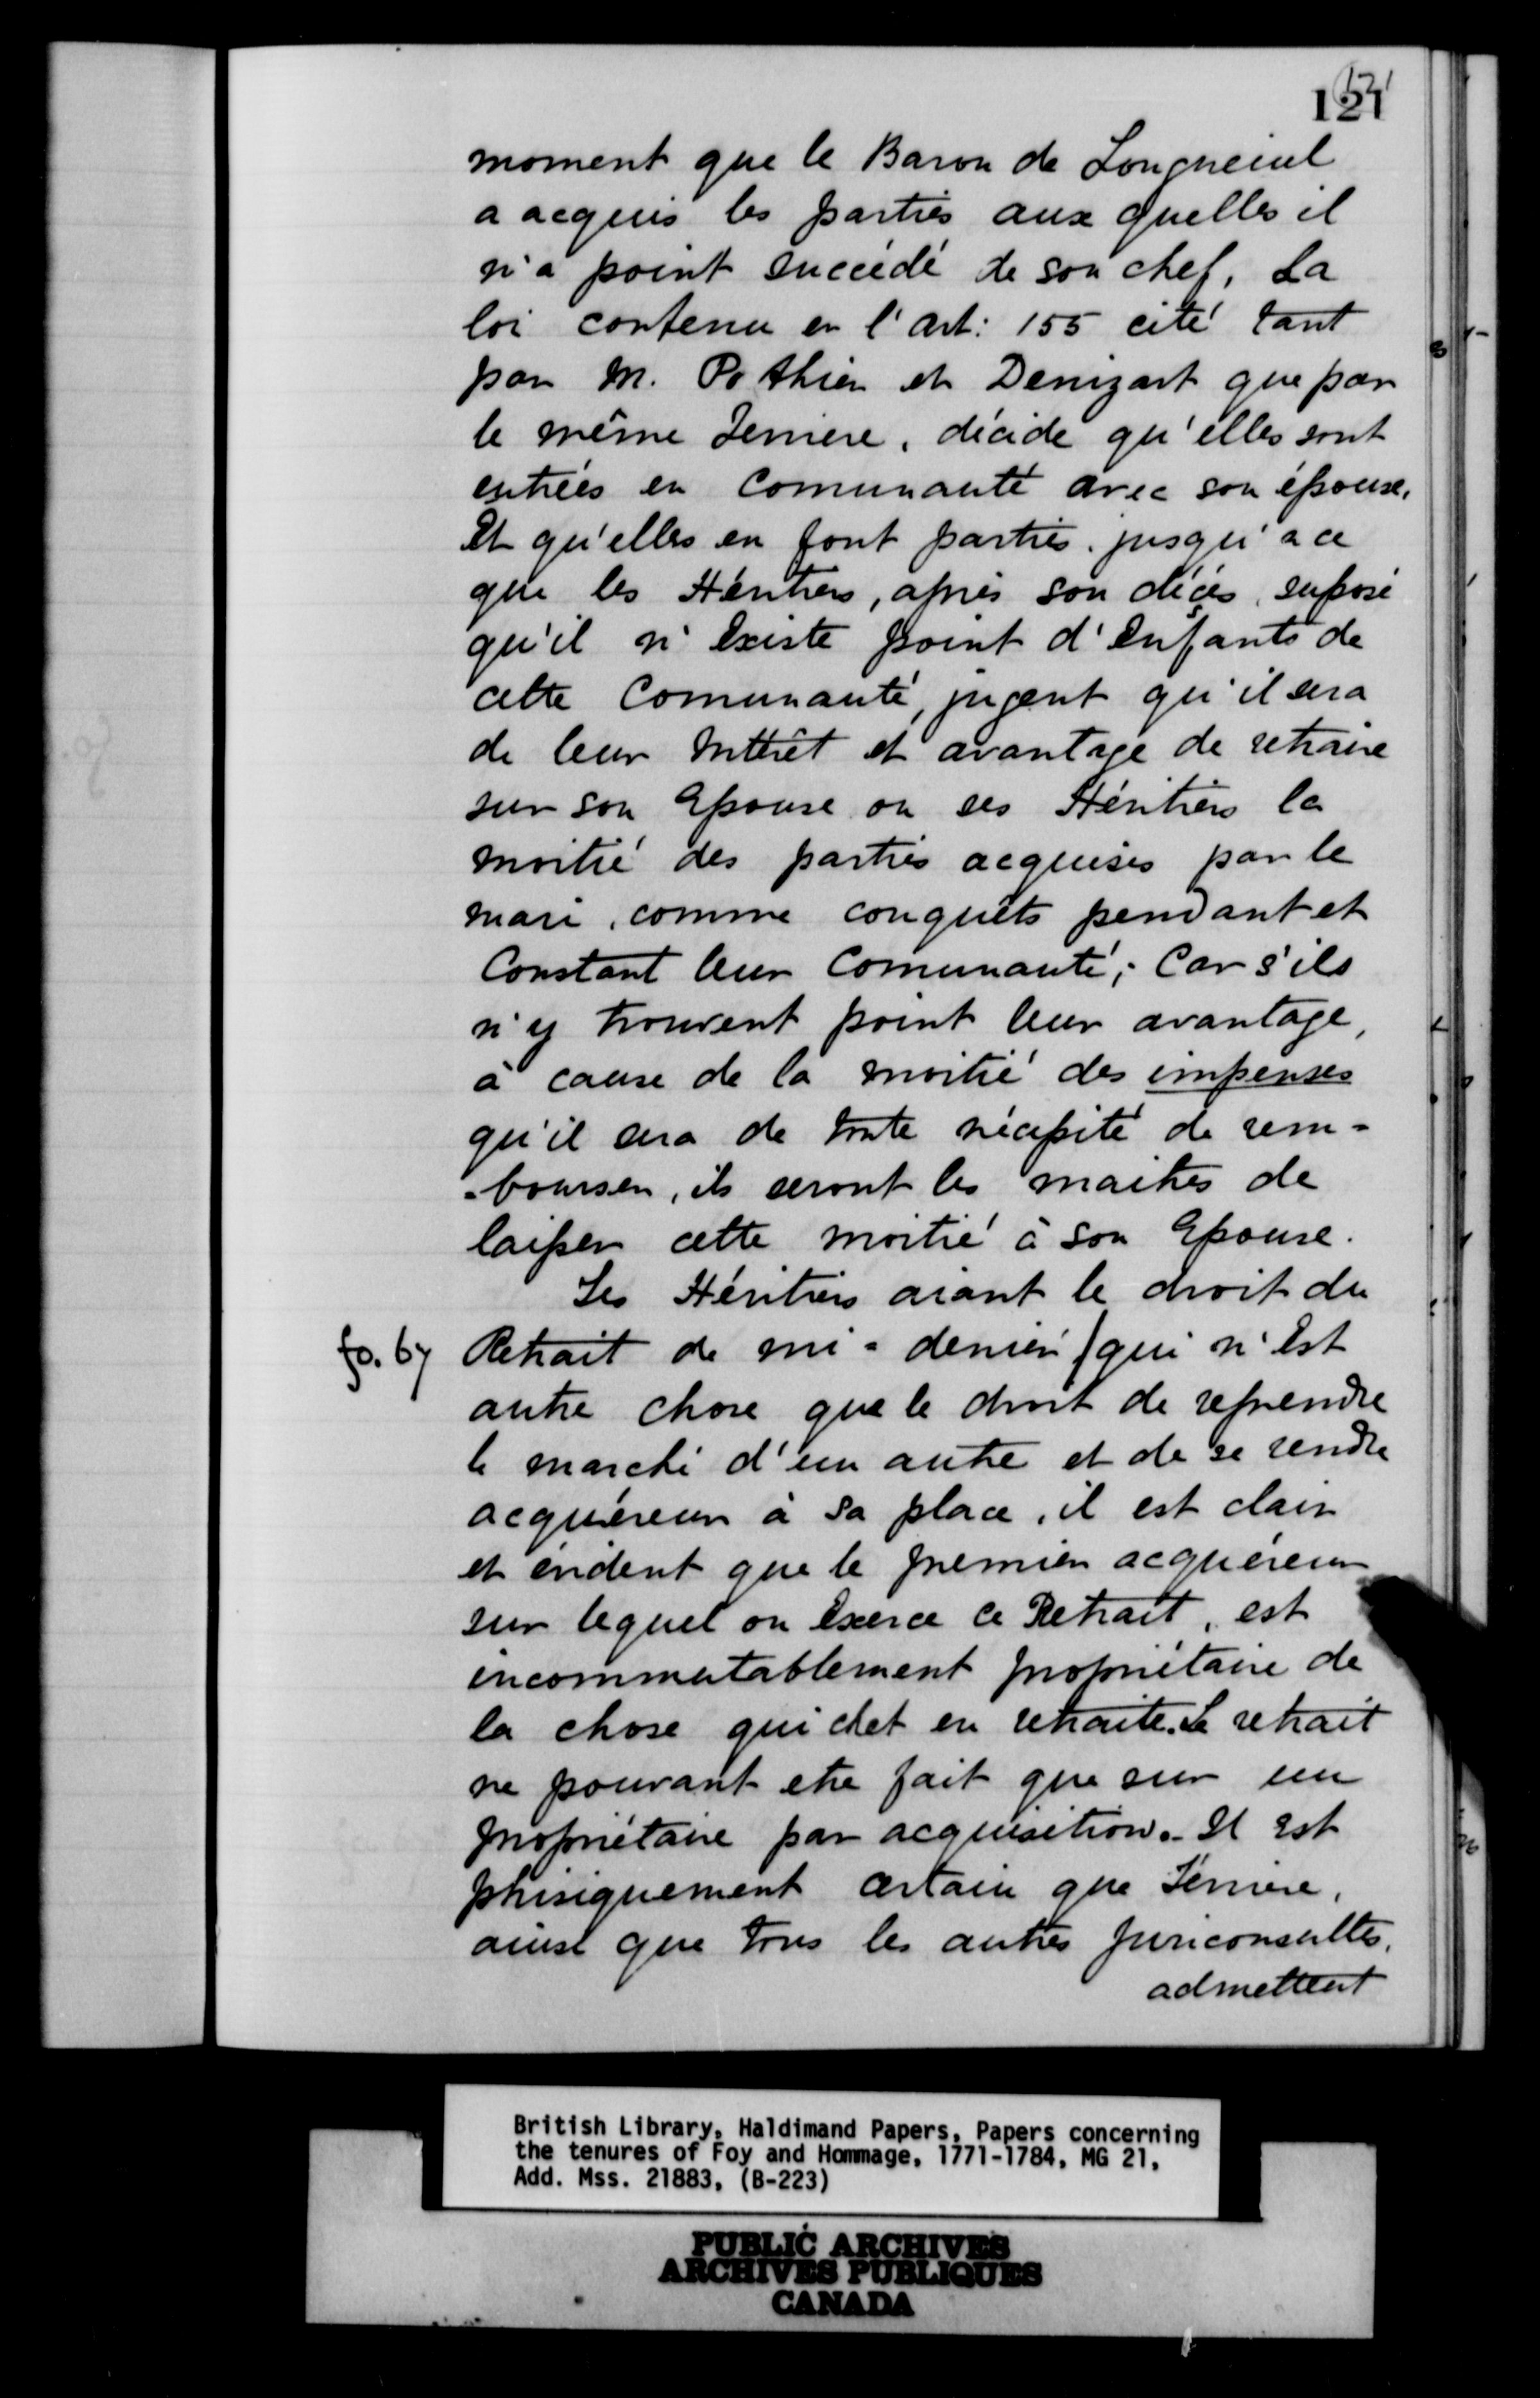 121
moment que le Baron de Longueuil
a acquis les parties aux quelles il
n'a point succédé de son chef, La
loi contenu en l'art: 155 cité tant
par M. Pothier et Denizart que par
le même Ferriere, décide qu'elles sont
entrées en Comunauté avec son épouse,
Et qu'elles en font parties, jusqu'a ce
que les Héritiers, après son décès, suposé
qu'il n'Existe point d'Enfants de
cette Comunauté, jugent qu'il sera
de leur Intérêt et avantage de retraire
sur son Epouse ou ses Héritiers la
moitié des parties acquises par le
mari, comme conquêts pendant et
Constant leur Comunauté; Car s'ils
n'y trouvent point leur avantage,
à cause de la moitié des impenses
qu'il sera de toute nécessité de rem-
-bourser, ils seront les maitres de
laisser cette moitié à son Epouse.
Les Héritiers aiant le droit du
fo. 67 Retrait de mi-denier (qui n'Est
autre chose que le droit de reprendre
le marché d'un autre et de se rendre
acquéreur à sa place, il est clair
et évident que le premier acquéreur
sur lequel on Exerce ce Retrait, est
incommutablement propriétaire de
la chose qui chet en retraite. Le retrait
ne pouvant etre fait que sur un
propriétaire par acquisition. - Il est
phisiquement certain que Ferriere,
ainsi que tous les autres Jurisconsultes,
admettent
British Library, Haldimand Papers, Papers concerning
the tenures of Foy and Hommage, 1771-1784, MG 21,
Add. Mss. 21883, (B-223)
PUBLIC ARCHIVES
ARCHIVES PUBLIQUES
CANADA